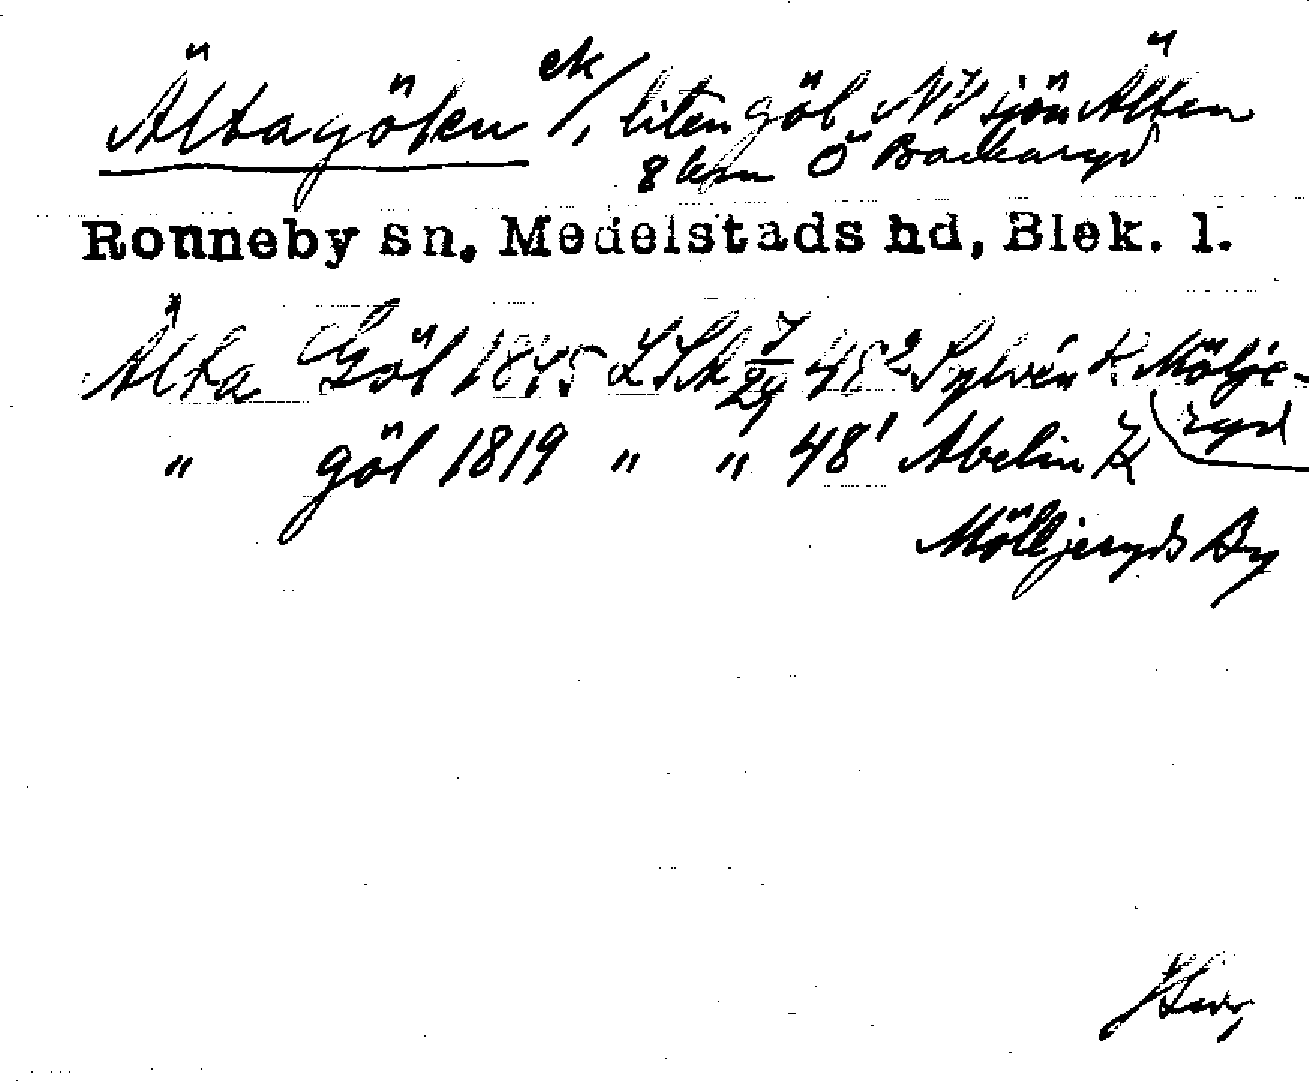 Ältagölen ek/, liten göl NV sjön Älten
8 km Ö Backaryd
Ronneby sn, Medelstads hd, Blek. l.
Älta Göl 1845 LSA 7/29 48² Sylvén K Mölje-
ryd
" göl 1819 " " 48¹ Abelin K
Mölljeryds By